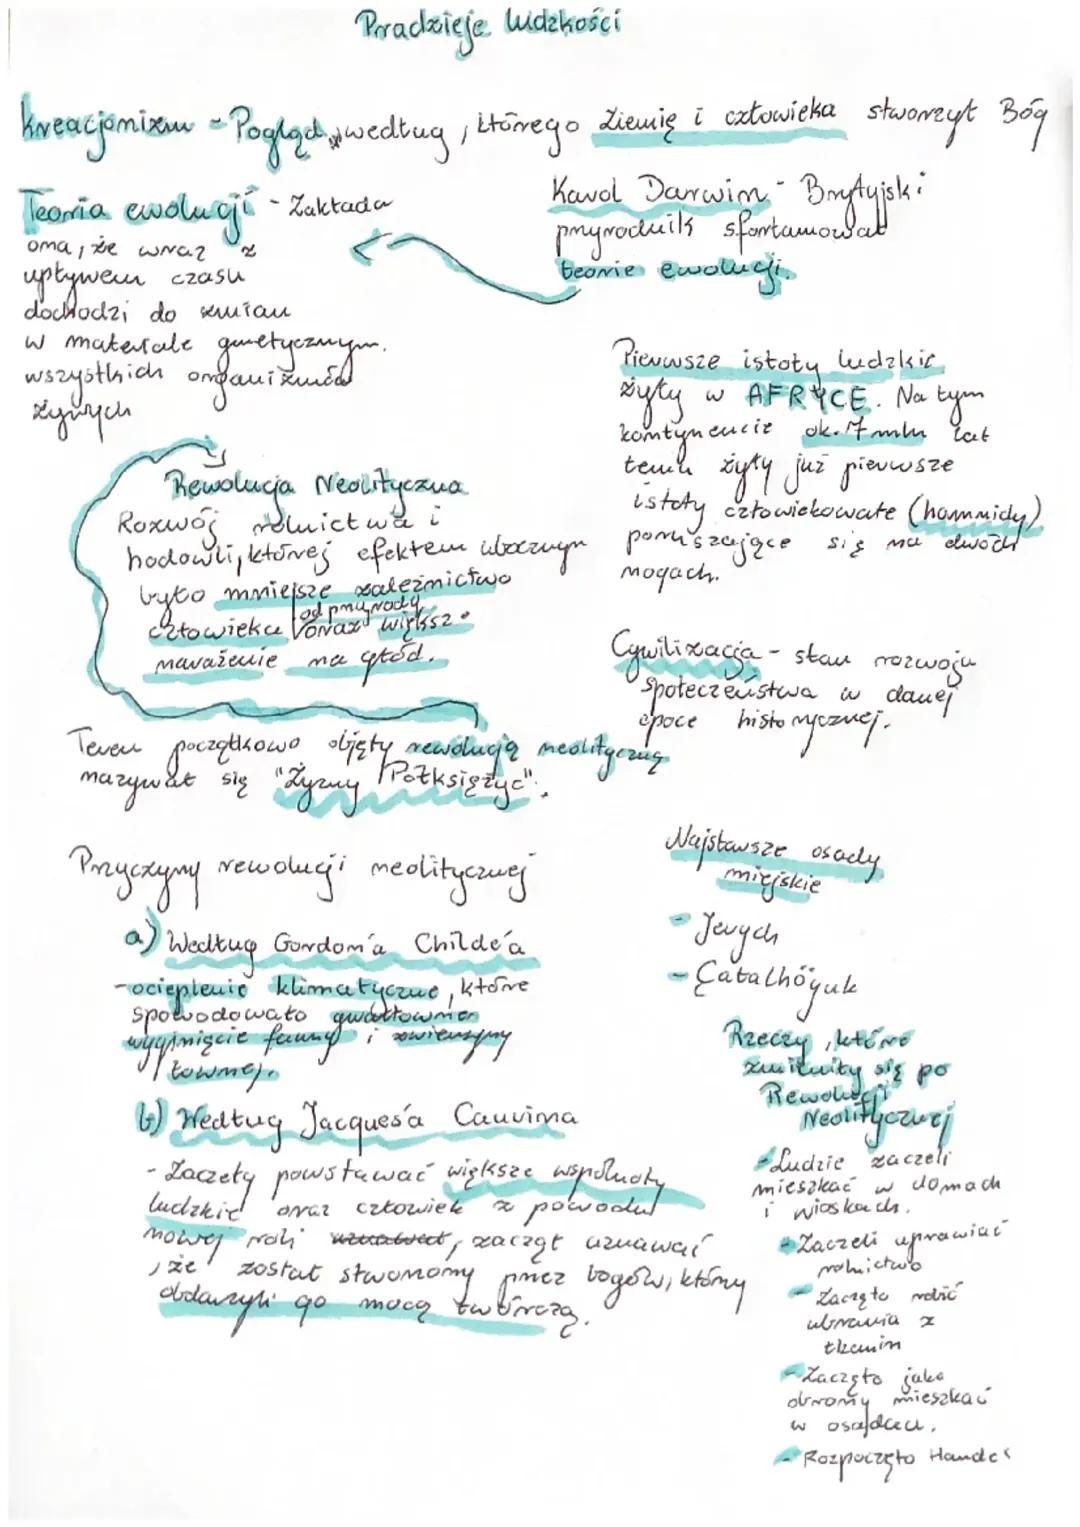 Pradzieje ludzkości
Kreacjonizm - Pogląd, według, którego Ziemię i człowieka stworzył Bóg
Teoria ewolucji - Zakłada
ona, że wraz z
upływem czasu
dochodzi do zmian
w materiale genetycznym.
wszystkich organizmów
żywych
Karol Darwin - Brytyjski
przyrodnik sfortamował
teorie ewolucji.
Pierwsze istoty ludzkie
żyły w AFRYCE. Na tym
kontynencie ok. 7 mln lat
temu żyły już pierwsze
istoty człowiekowate (hommidy)
poruszające się na dwóch
nogach.
Rewolucja Neolityczna
Rozwój rolnictwa i
hodowli, której efektem ubocznym
było mniejsze zależnictwo
człowieka od przyrody oraz większe
narażenie na głód.
Cywilizacja - stan rozwoju
społeczeństwa w danej
epoce historycznej.
Teren początkowo objęty rewolucją neolityczną
nazywał się "Żyzny Półksiężyc".
Przyczyny rewolucji neolitycznej
a) Według Gordon'a Childe'a
- ocieplenie klimatyczne, które
spowodowało gwałtowne
wyginięcie fauny i zwierzyny
łownej.
b) Według Jacques'a Cauvina
- Zaczęły powstawać większe wspólnoty
ludzkie oraz człowiek z powodu
nowej roli uznawał, zaczął uznawać
, że został stworzony przez bogów, którzy
obdarzyli go mocą twórczą.
Najstarsze osady
miejskie
- Jerych
- Çatalhöyuk
Rzeczy, które
zmieniły się po
Rewolucji
Neolitycznej
- Ludzie zaczeli
mieszkać w domach
i wioskach.
- Zaczeli uprawiać
rolnictwo
- Zaczęto robić
ubrania z
tkanin
- Zaczęto jako
obrony mieszkać
w osadach.
- Rozpoczęto Handel